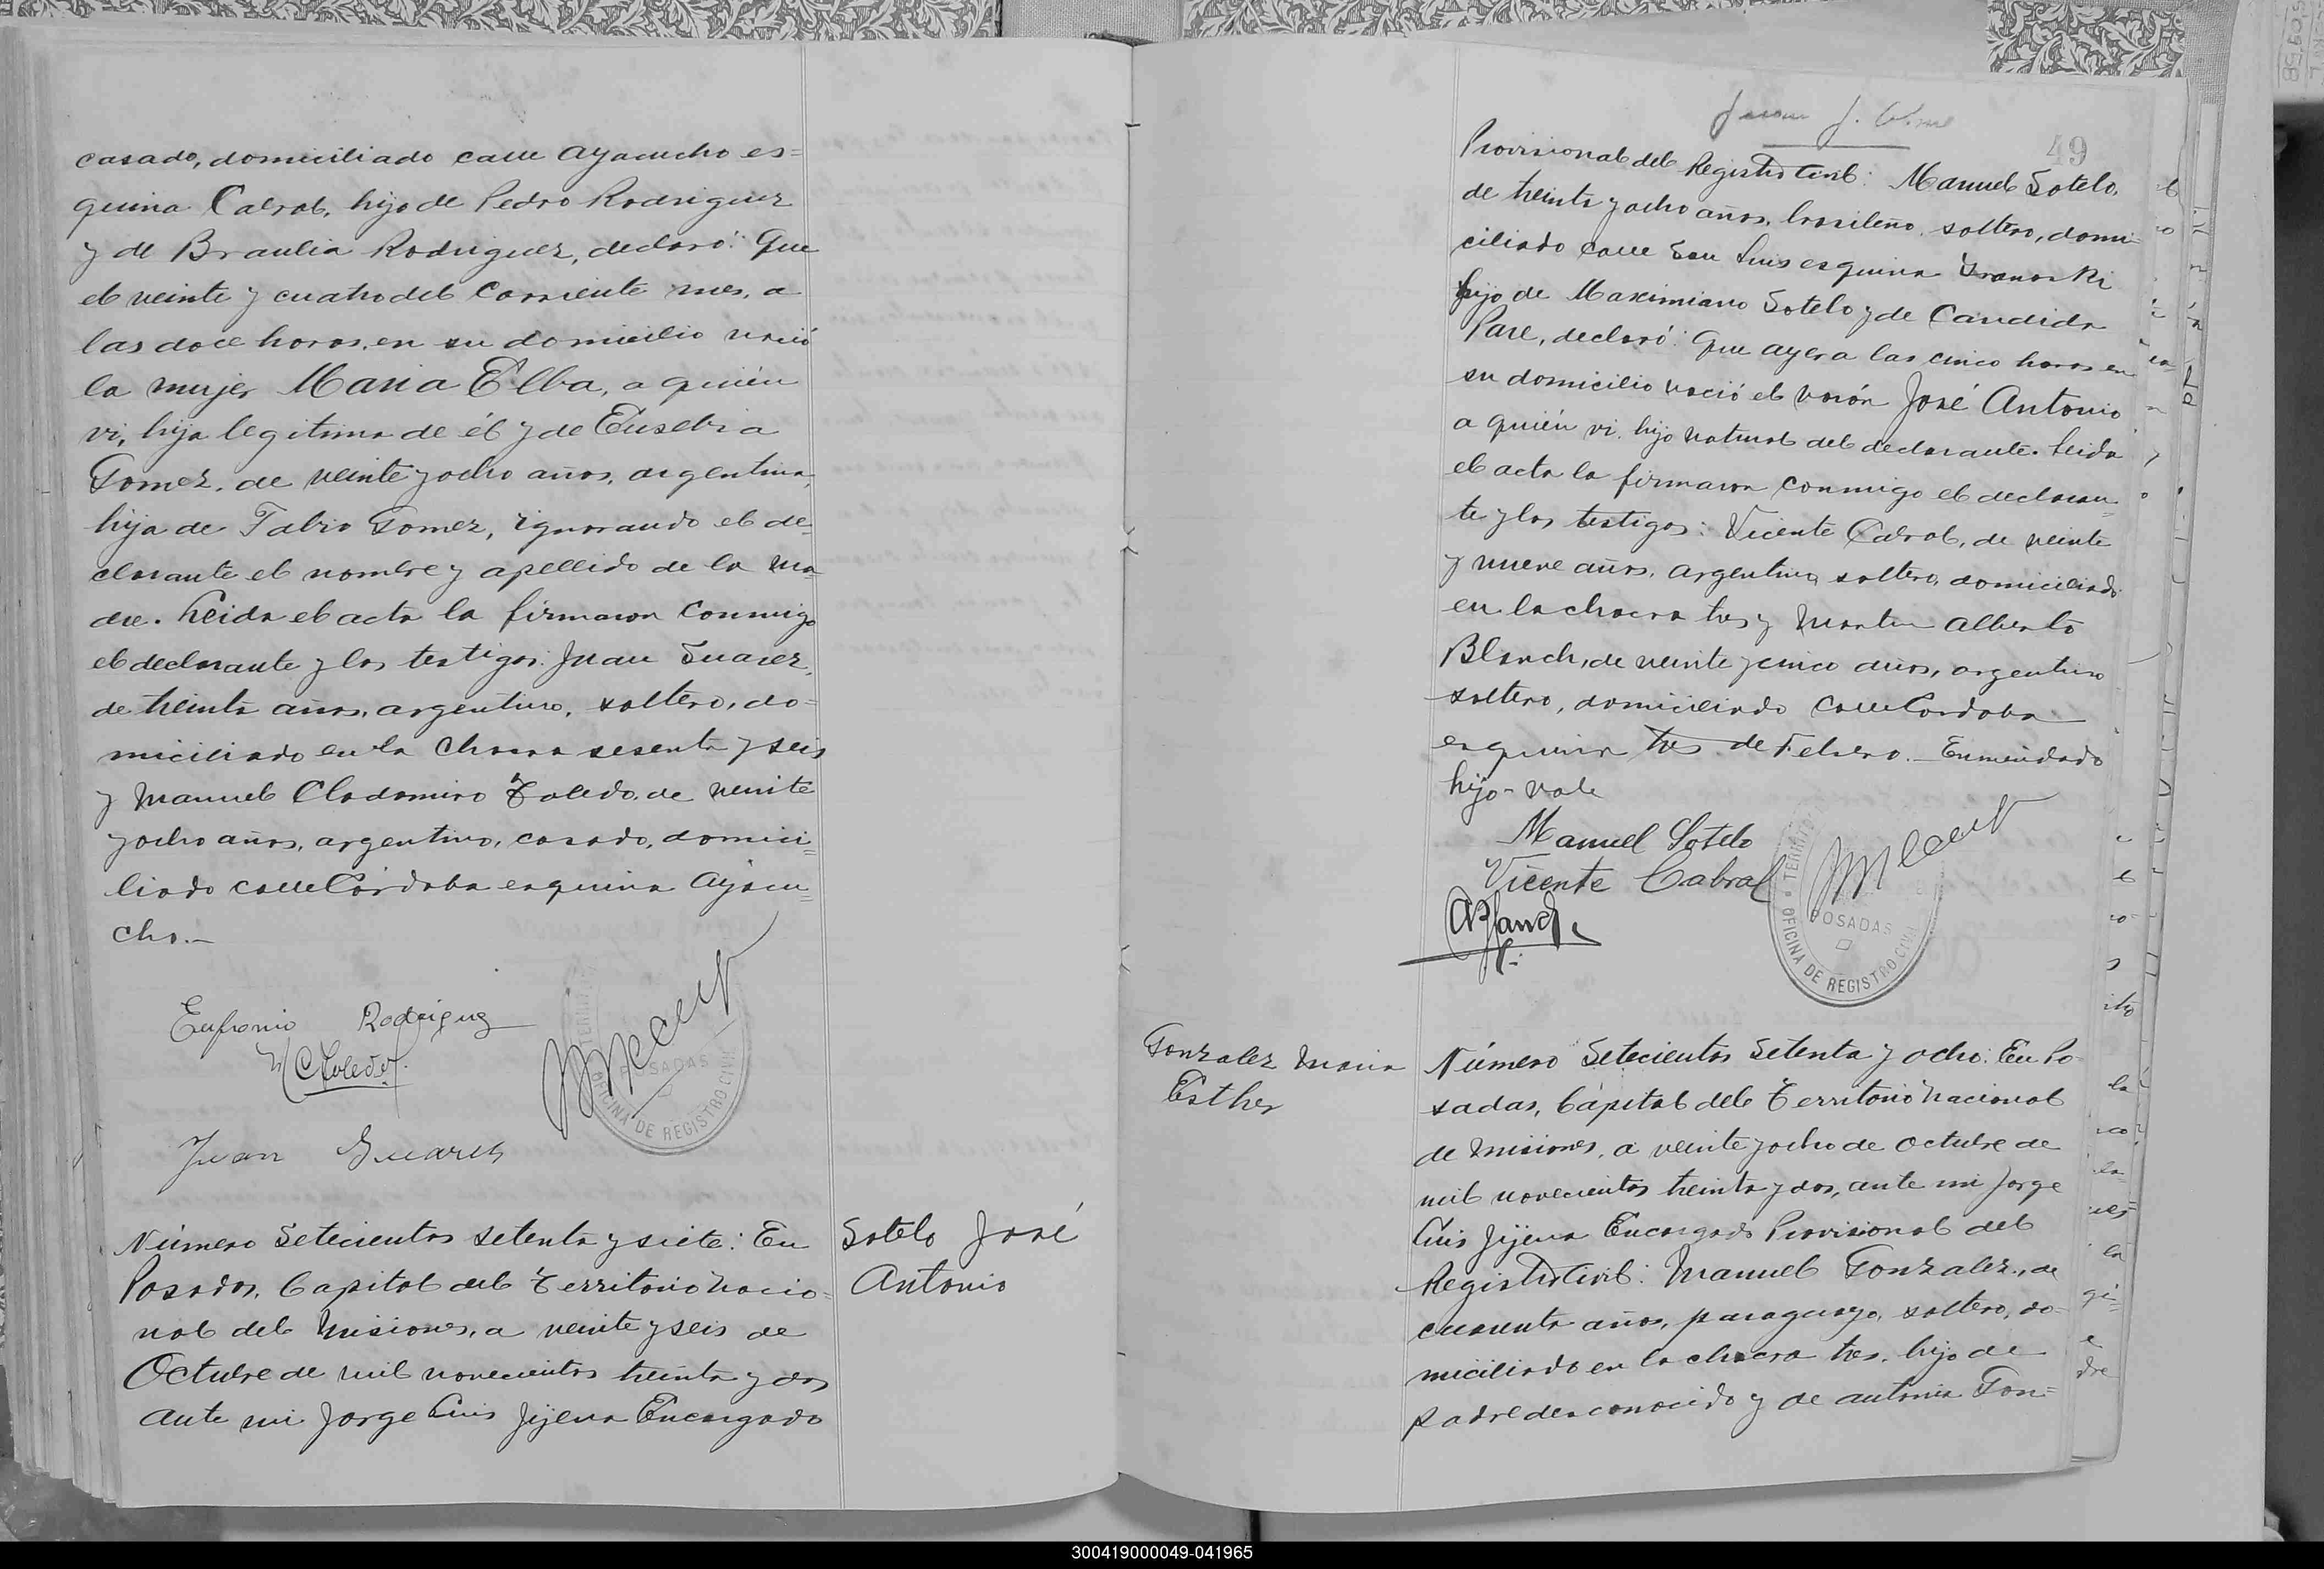 casado, domiciliado calle Ayacucho es=
quina Cabral, hijo de Pedro Rodriguez
y de Braulia Rodriguez, declaró: Que
el veinte y cuatro del corriente mes, a
las doce horas, en su domicilio nació
la mujer Maria Elba, a quién
vi, hija legitima de él y de Eusebia
Gomez, de veinte y ocho años, argentina,
hija de Fabio Gomez, ignorando el de-
clarante el nombre y apellido de la ma
dre. Leida el acta la firmaron conmigo
el declarante y los testigos: Juan Suarez,
de treinta años, argentino, soltero, do=
miciliado en la Chacra sesenta y seis
y Manuel Clodomiro Toledo, de veinte
y ocho años, argentino, casado, domici=
liado calle Córdoba esquina Ayacu=
cho.—
Eufronio Rodriguez
M C Toledo
Juan Suarez
POSADAS
OFICINA DE REGISTRO CIVIL
Número Setecientos setenta y siete: En
Posadas, Capital del Territorio Nacio=
nal del Misiones, a veinte y seis de
Octubre de mil novecientos treinta y dos
ante mi Jorge Luis Jijena Encargado
Sotelo José
Antonio
49
Provisional del Registro Civil: Manuel Sotelo,
de treinta y ocho años, brasileño, soltero, domi=
ciliado calle San Luis esquina
hijo de Maximiano Sotelo y de Candida
Pare, declaró: Que ayer a las cinco horas en
su domicilio nació el varón José Antonio
a quién vi, hijo natural del declarante. Leida
el acta la firmaron conmigo el declaran=
te y los testigos: Vicente Cabral, de veinte
y nueve años, argentino, soltero, domiciliado
en la chacra tres y Martin Alberto
Blanch, de veinte y cinco años, argentino
soltero, domiciliado calle Cordoba
esquina tres de Febrero.— Enmendado
hijo - vale
Manuel Sotelo
Vicente Cabral
POSADAS
OFICINA DE REGISTRO CIVIL
Gonzalez Maria
Esther
Número Setecientos Setenta y ocho: En Po-
sadas, Capital del Territorio Nacional
de Misiones, a veinte y ocho de Octubre de
mil novecientos treinta y dos, ante mi Jorge
Luis Jijena Encargado Provisional del
Registro Civil: Manuel Gonzalez, de
cuarenta años, paraguayo, soltero, do-
miciliado en la chacra tres, hijo de
padre desconocido y de Antonia Gon=
300419000049-041965